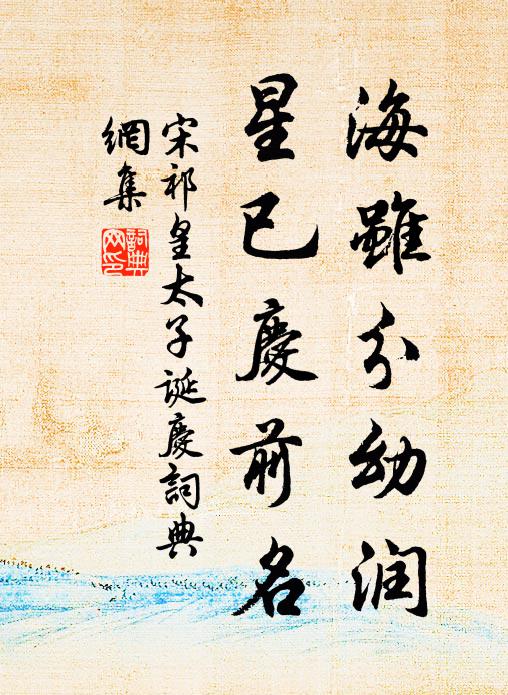 海雖分幼润
星已慶前名
宋祁皇太子誕慶詞典
網集
詞典網印